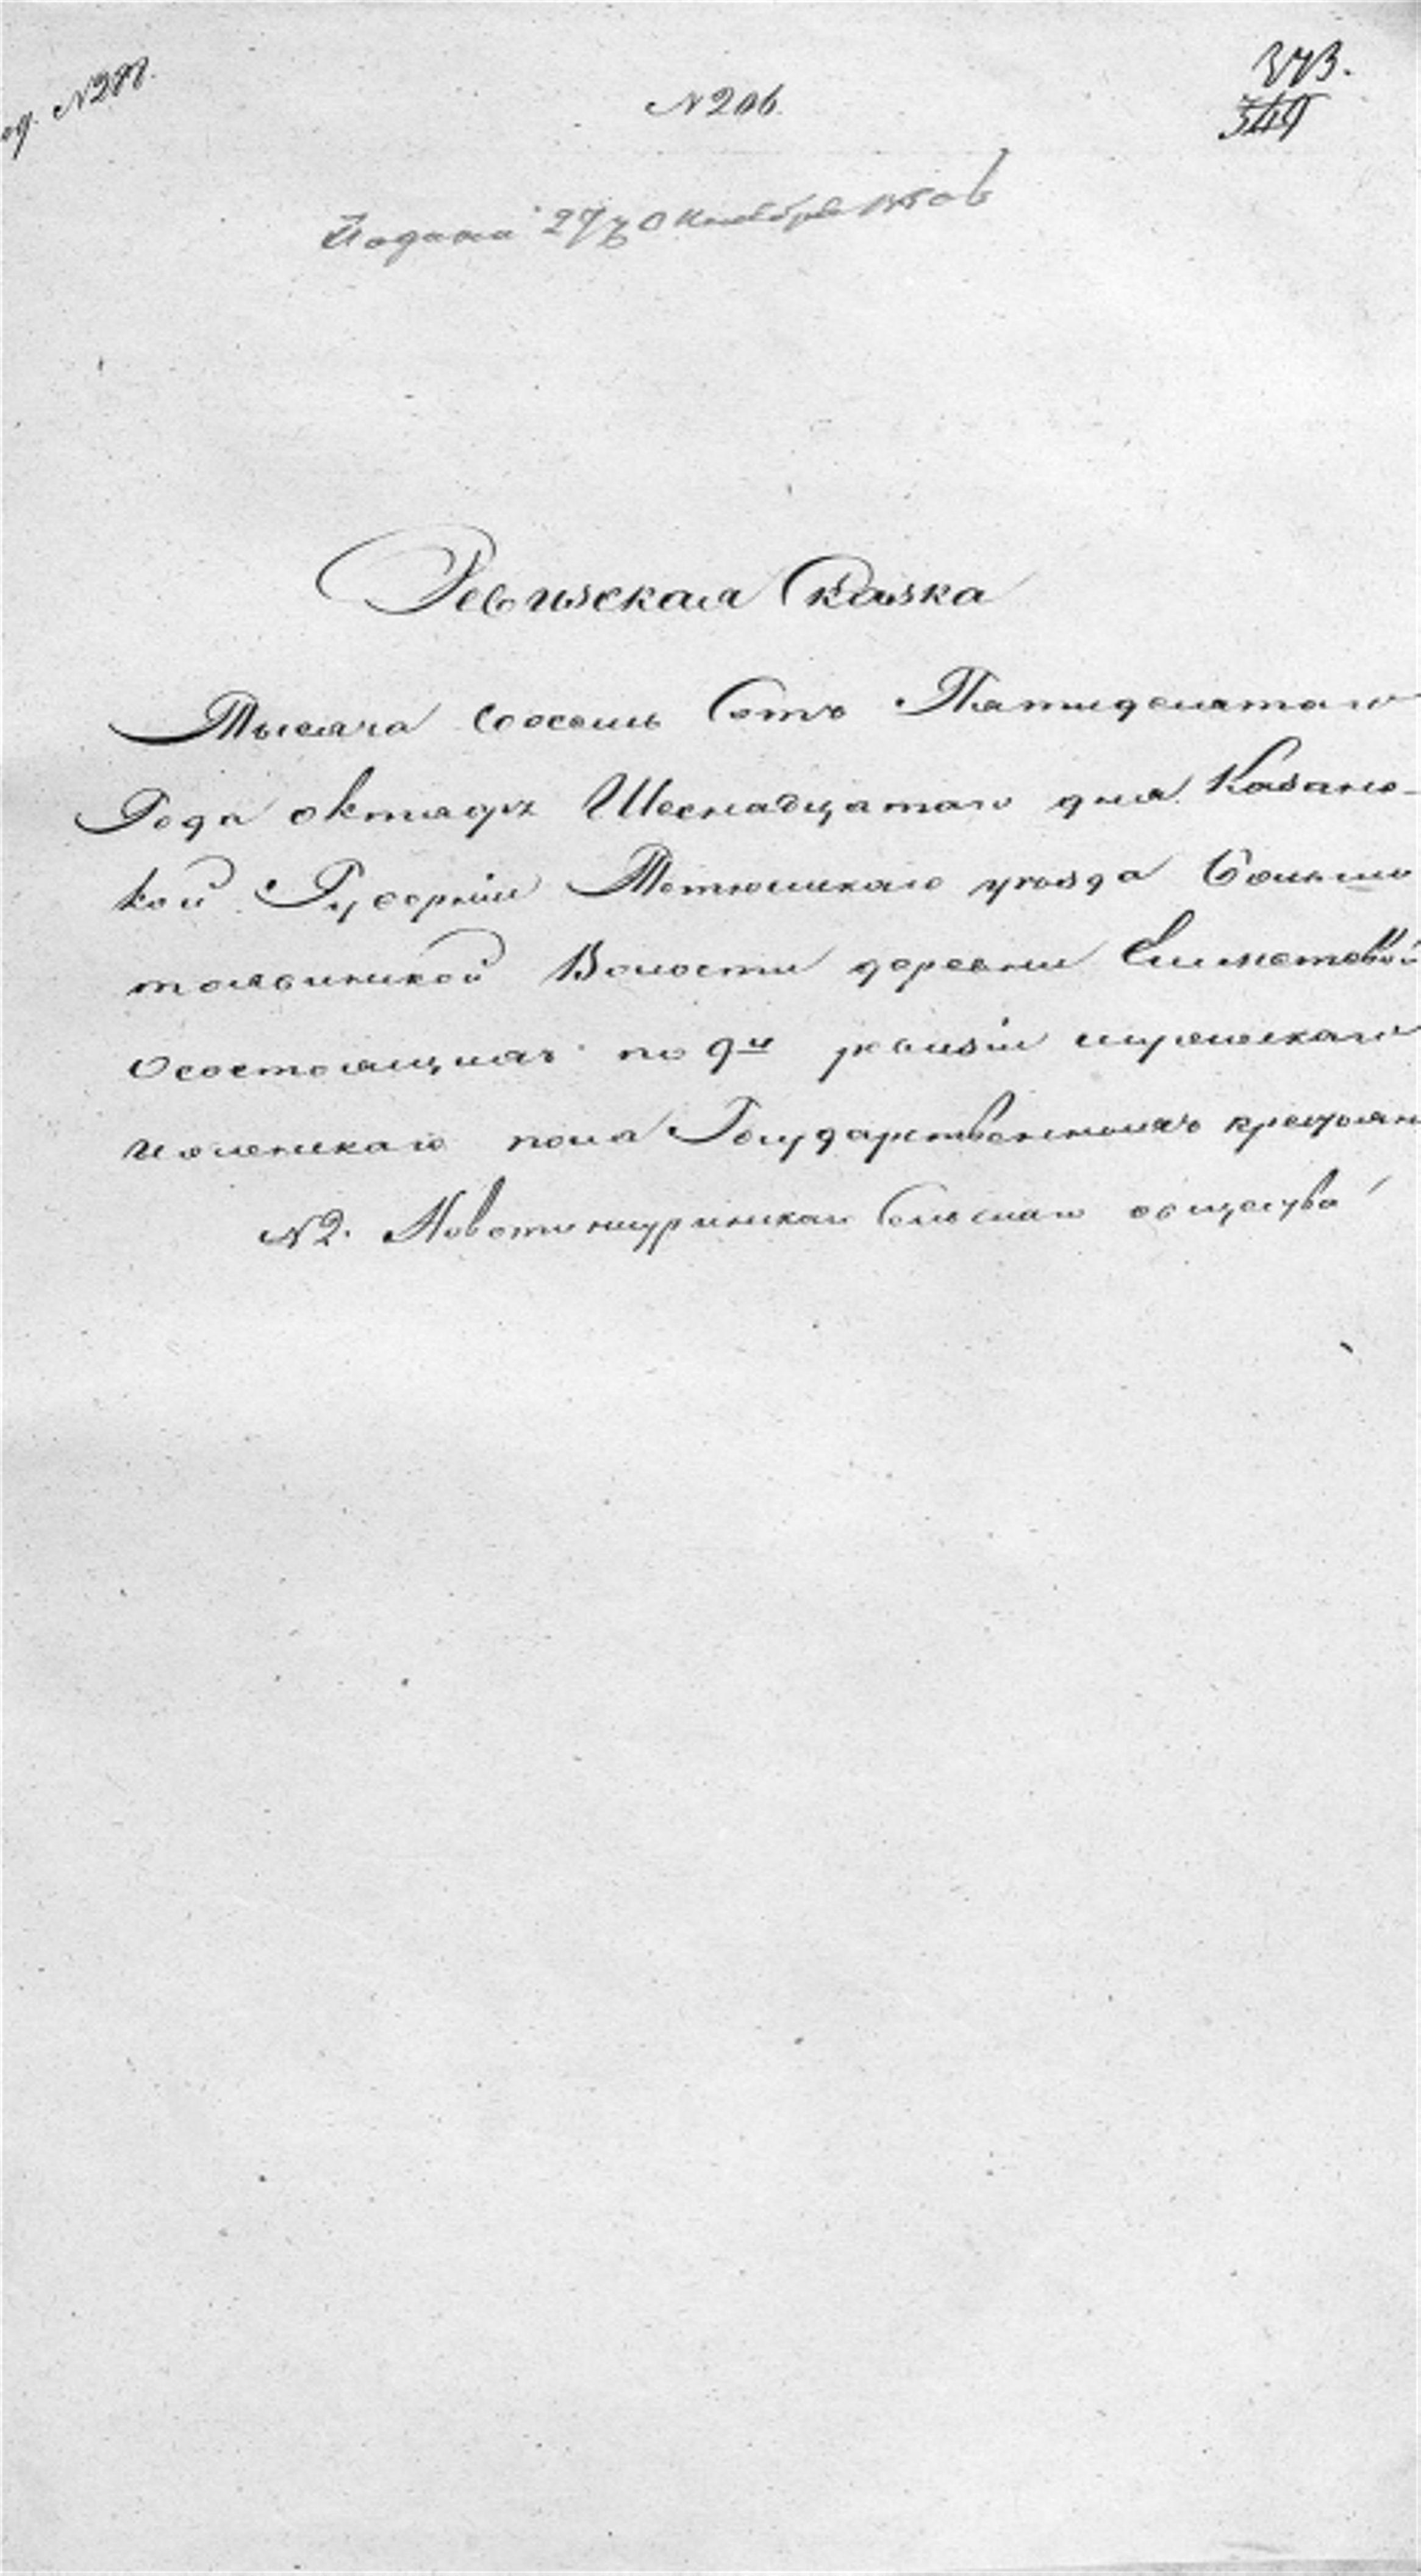 N 206.
373.
349
Подана 27го Октября 1850
Ревизская Сказка
Тысяча восемь сотъ Пятидесятаго
Года октября Шеснадцатаго дня Казанс-
кой Губернии Тетюшскаго уезда Больше
тоябинской Волости деревни
Осостоящихъ по 9й ревизіи мужескаго
и женскаго пола Государственныхъ крестьян
N 2. Сельскаго общества